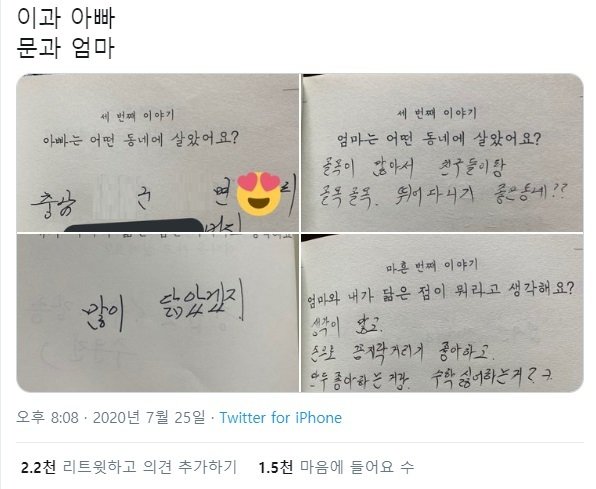 이과 아빠
문과 엄마
세 번째 이야기
아빠는 어떤 동네에 살았어요?
충남 군 면 리
많이 닮았겠지
세 번째 이야기
엄마는 어떤 동네에 살았어요?
골목이 많아서 친구들이랑
골목골목 뛰어다니기 좋은동네??
마흔 번째 이야기
엄마와 내가 닮은 점이 뭐라고 생각해요?
생각이 많고
손으로 꼼지락거리기 좋아하고
만두 좋아하는거랑 수학 싫어하는거?ㅋ
오후 8:08 · 2020년 7월 25일 · Twitter for iPhone
2.2천 리트윗하고 의견 추가하기 1.5천 마음에 들어요 수